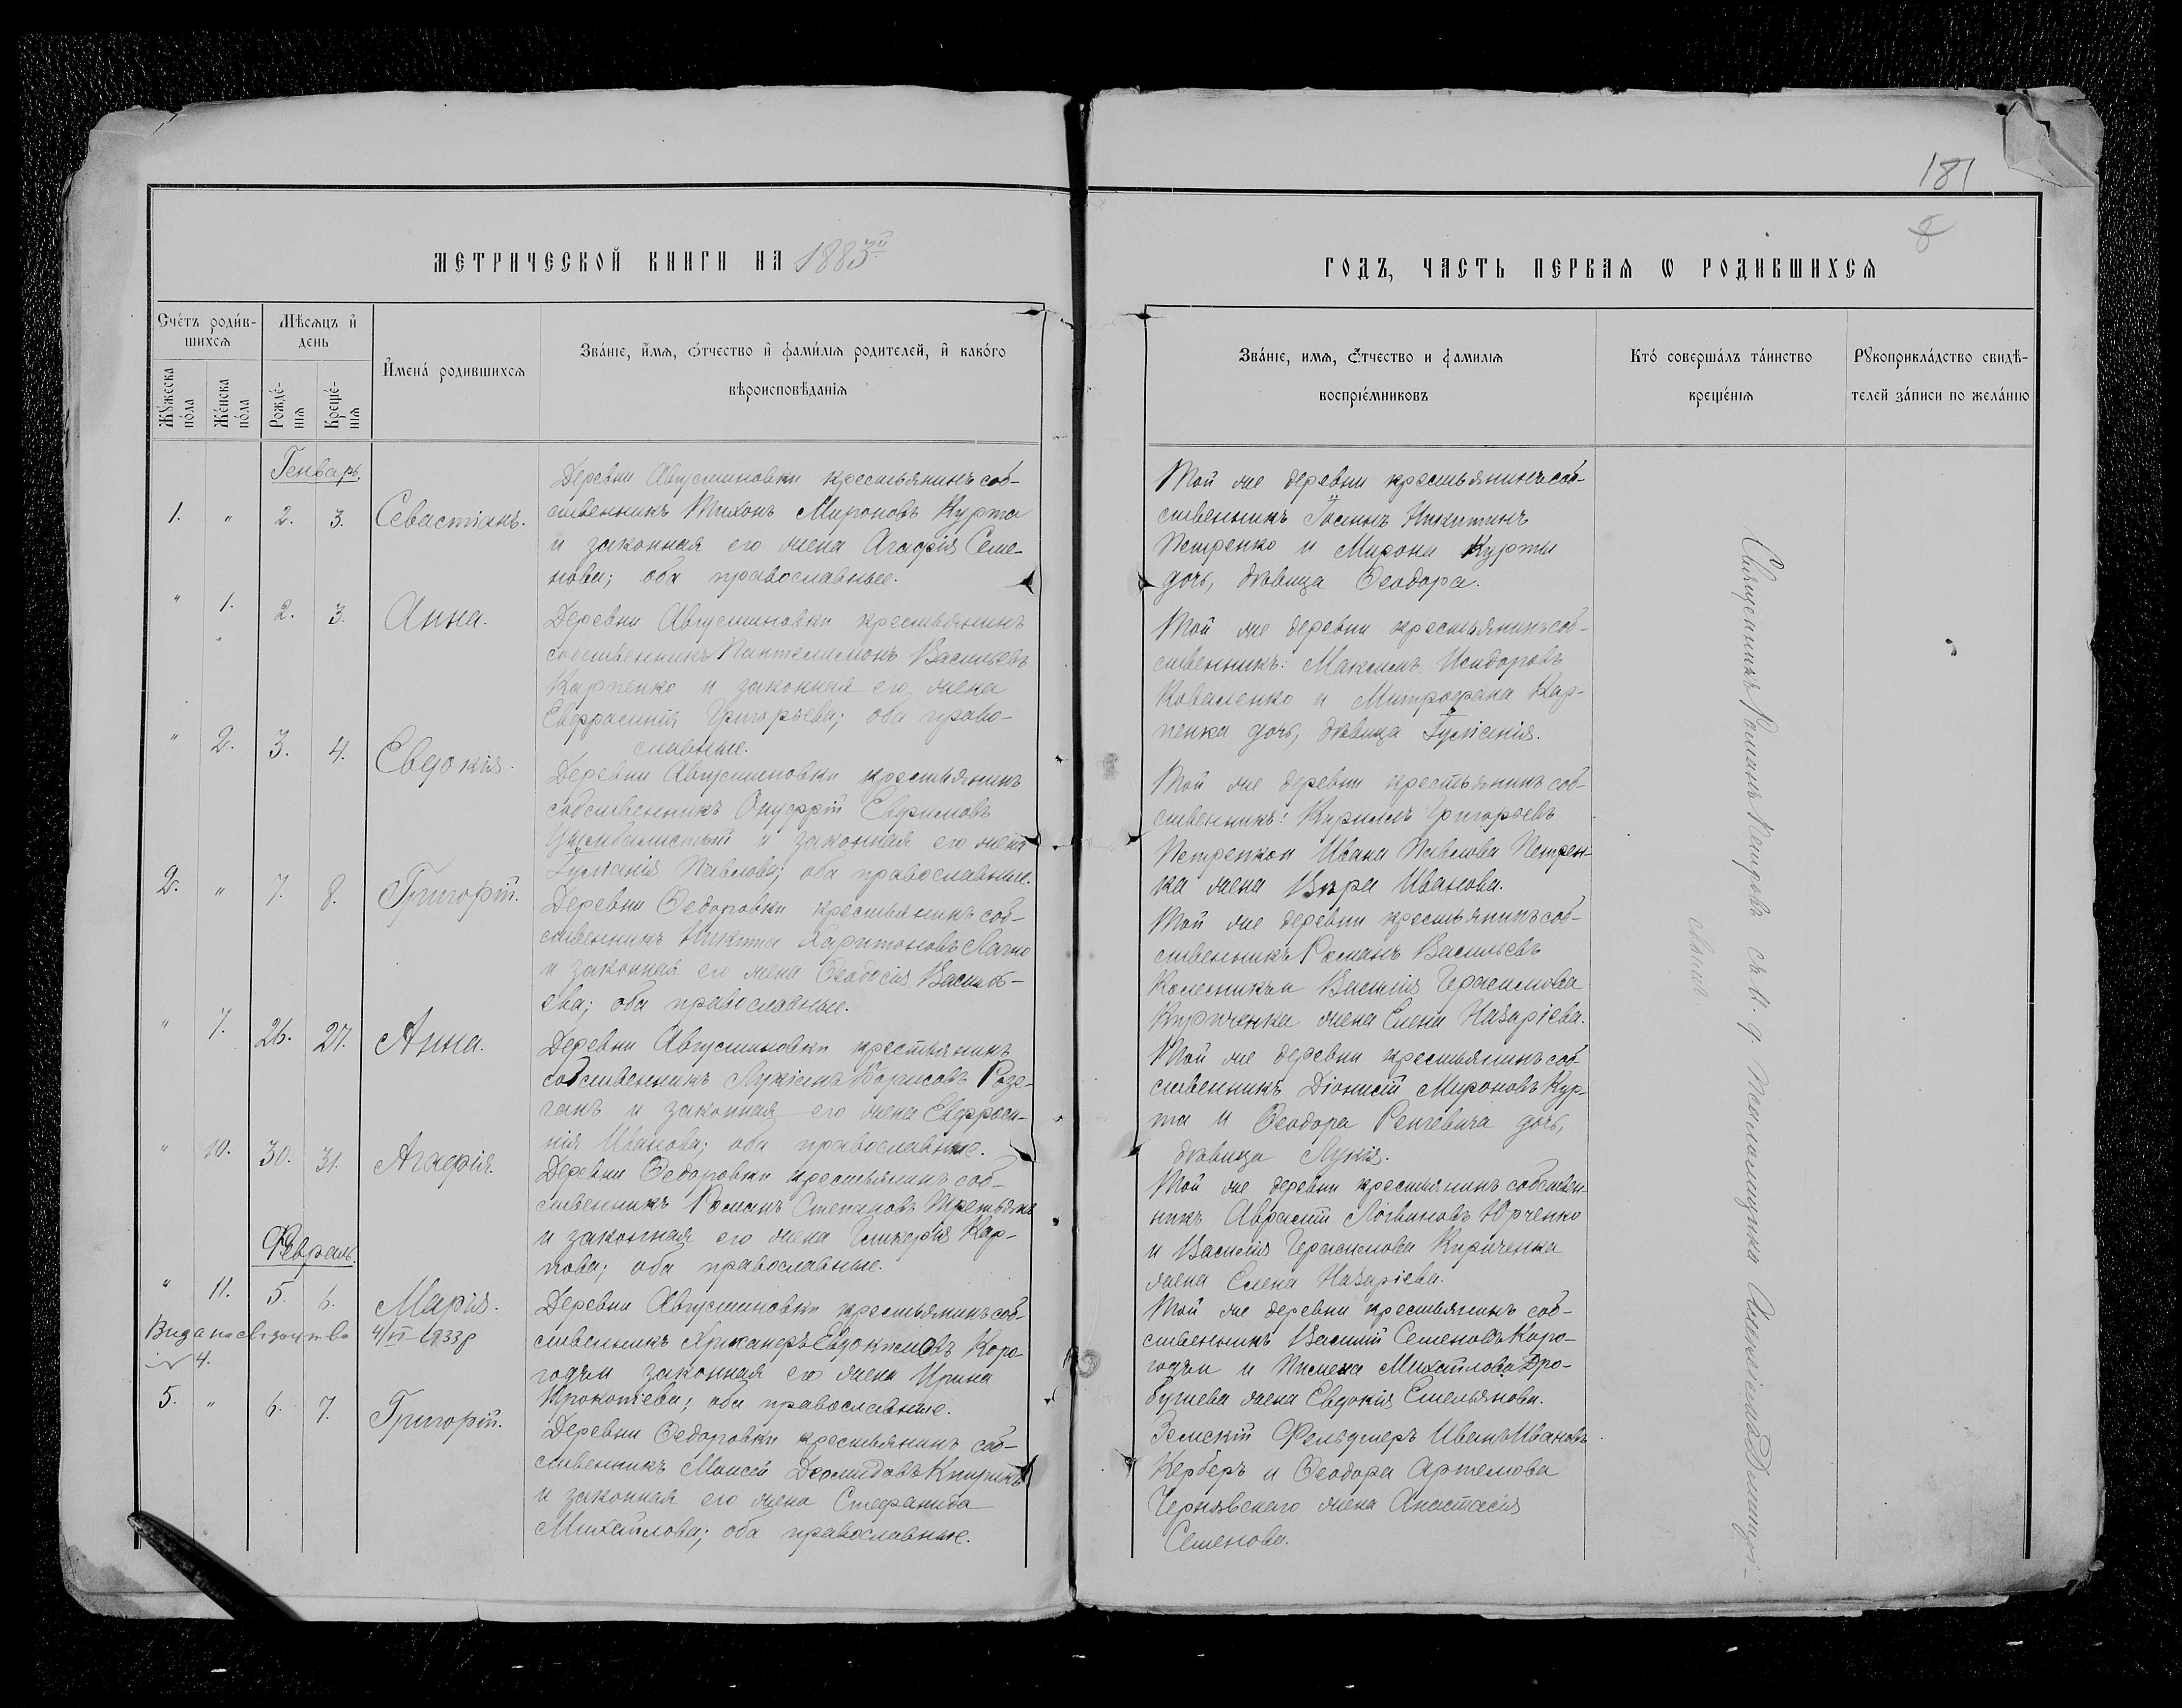 181
8
МЕТРИЧЕСКОЙ КНИГИ НА 1883й
ГОДЪ, ЧАСТЬ ПЕРВАЯ Ѡ РОДИВШИХСЯ
Счétъ роди́в-
шихся
Мѣсяцъ и҆
день
Мꙋжеска
по́ла
Же́нска
по́ла
Рожде́-
нія
Креще́-
нія
И҆мена́ родившихся
Зва́ніе, и҆мя, ѻ҆́тчество и҆ фами́лія родителей, и҆ како́го
вѣроисповѣ́данія
Зва́ніе, имя, ѻ҆́тчество и фамилія
воспріе́мниковъ
Кто́ соверша́лъ та́инство
креще́нія
Рꙋкоприкла́дство свидѣ́-
телей за́писи по жела́нію
Генварь.
1. " 2. 3. Севастіанъ.
Деревни Августиновки крестьянинъ соб-
ственникъ Тихонъ Мироновъ Курта
и законная его жена Агафія Семе-
нова; оба православные.
Той же деревни крестьянинъ соб-
ственникъ Іоаннъ Никитинъ
Петренко и Мирона Курты
дочь, дѣвица Ѳеодора.
" 1. 2. 3. Анна.
Деревни Августиновки крестьянинъ
собственникъ Пантелимонъ Васильевъ
Карпенко и законная его жена
Евфросинія Григорьева; оба право-
славные.
Той же деревни крестьянинъ соб-
ственникъ: Максимъ Исидоровъ
Коваленко и Митрофана Кар-
пенка дочь, дѣвица Іуліанія.
" 2. 3. 4. Евдокія.
Деревни Августиновки крестьянинъ
собственникъ Онуфрій Евфимовъ
Цымбалистый и законная его жена
Іуліанія Павлова; оба православные.
Той же деревни крестьянинъ соб-
ственникъ: Кириллъ Григорьевъ
Петренко и Ивана Павлова Петрен-
ка жена Вѣра Иванова.
2. " 7. 8. Григорій.
Деревни Ѳедоровки крестьянинъ соб-
ственникъ Никита Харитоновъ Лагно
и законная его жена Ѳеодосія Василь-
ева; оба православные.
Той же деревни крестьянинъ соб-
ственникъ Романъ Васильевъ
Колесникъ и Василія Герасимова
Кириченка жена Елена Назаріева.
" 7. 26. 27. Анна.
Деревни Августиновки крестьянинъ
собственникъ Лукіанъ Борисовъ Роз-
ганъ и законная его жена Евфроси-
нія Иванова; оба православные.
Той же деревни крестьянинъ соб-
ственникъ Діонисій Мироновъ Кур-
та и Ѳеодора Ренгевича дочь,
дѣвица Лукія.
" 10. 30. 31. Агафія.
Деревни Ѳедоровки крестьянинъ соб-
ственникъ Романъ Степановъ Третьякъ
и законная его жена Гликерія Кар-
пова; оба православные.
Той же деревни крестьянинъ собствен-
никъ Аврамій Логвиновъ Юрченко
и Василія Герасимова Кириченка
жена Елена Назаріева.
Февраль.
" 11. 5. 6. Марія.
Видано свідоцтво 4/VI-1933р
№ 4.
Деревни Августиновки крестьянинъ соб-
ственникъ Евдокимовъ Коро-
годъ и законная его жена Ирина
Прокопіева; оба православные.
Той же деревни крестьянинъ соб-
ственникъ Василій Семеновъ Коро-
годъ и Пимена Михайлова Дро-
бушева жена Евдокія Емельянова.
5. " 6. 7. Григорій.
Деревни Ѳедоровки крестьянинъ соб-
ственникъ Моисей Деомидовъ
и законная его жена Стефанида
Михайлова; оба православные.
Земскій Фельдшеръ Иванъ Ивановъ
Керберъ и Ѳеодора Артемова
Чернявскаго жена Анастасія
Семенова.
Священникъ Романъ Петровъ съ И. д. Псаломщика